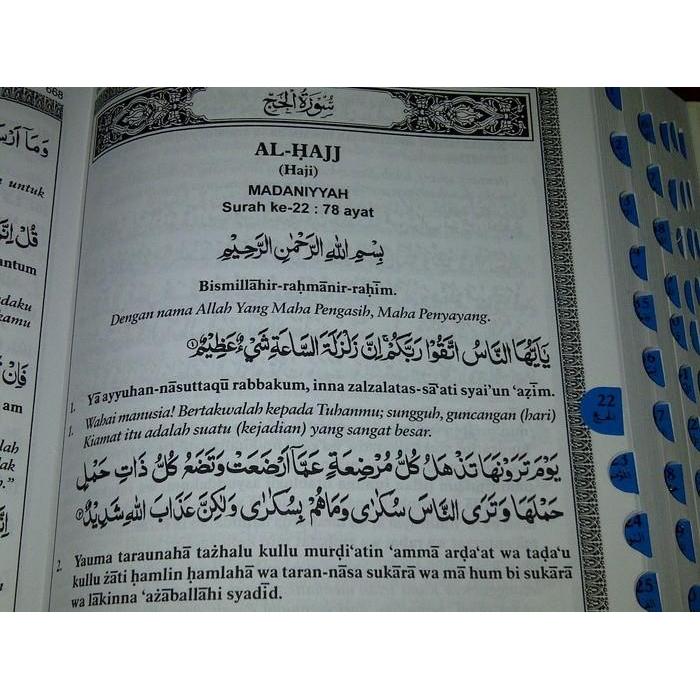 668
وَمَا أَرْسَ
untuk
قُلْ اِنَّ
antum
daku
kamu
فَاِنْ
am
lah
dak
.”
سُوْرَةُ الْحَجّ
AL-ḤAJJ
(Haji)
MADANIYYAH
Surah ke-22 : 78 ayat
بِسْمِ اللّٰهِ الرَّحْمٰنِ الرَّحِيْمِ
Bismillāhir-raḥmānir-raḥīm.
Dengan nama Allah Yang Maha Pengasih, Maha Penyayang.
يٰٓاَيُّهَا النَّاسُ اتَّقُوْا رَبَّكُمْۚ اِنَّ زَلْزَلَةَ السَّاعَةِ شَيْءٌ عَظِيْمٌ ١
1. Yā ayyuhan-nāsuttaqū rabbakum, inna zalzalatas-sā‘ati syai'un ‘aẓīm.
1. Wahai manusia! Bertakwalah kepada Tuhanmu; sungguh, guncangan (hari)
Kiamat itu adalah suatu (kejadian) yang sangat besar.
يَوْمَ تَرَوْنَهَا تَذْهَلُ كُلُّ مُرْضِعَةٍ عَمَّآ اَرْضَعَتْ وَتَضَعُ كُلُّ ذَاتِ حَمْلٍ
حَمْلَهَا وَتَرَى النَّاسَ سُكٰرٰى وَمَا هُمْ بِسُكٰرٰى وَلٰكِنَّ عَذَابَ اللّٰهِ شَدِيْدٌ ٢
2. Yauma taraunahā tażhalu kullu murḍi‘atin ‘ammā arḍa‘at wa taḍa‘u
kullu żāti ḥamlin ḥamlahā wa taran-nāsa sukārā wa mā hum bi sukārā
wa lākinna ‘ażāballāhi syadīd.
22
الحج
23
24
25